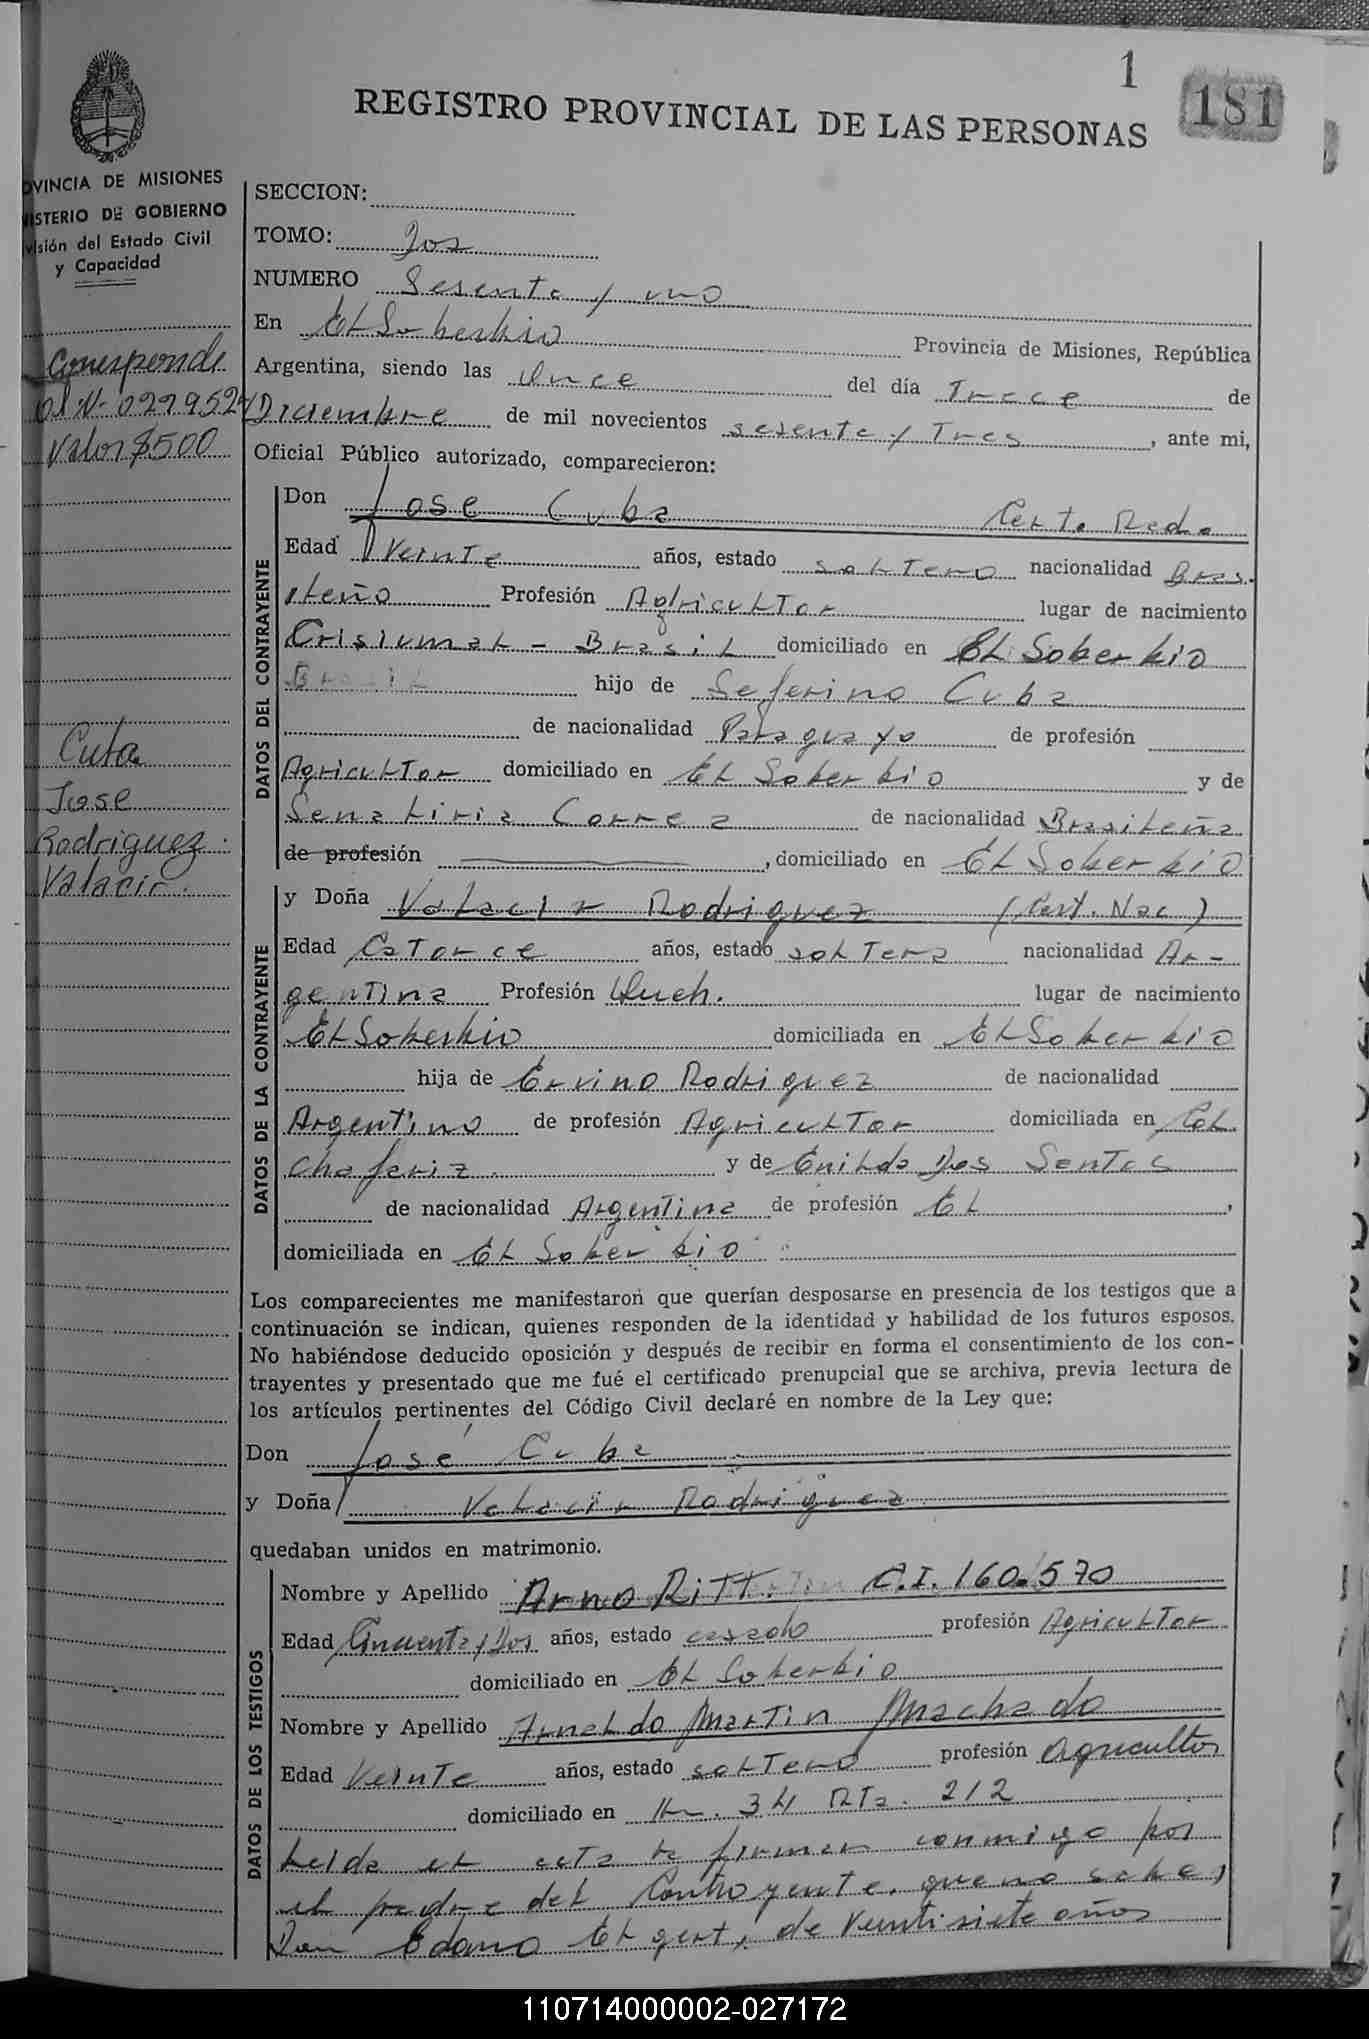 1
181
REGISTRO PROVINCIAL DE LAS PERSONAS
OVINCIA DE MISIONES
ISTERIO DE GOBIERNO
visión del Estado Civil
y Capacidad
Corresponde
027952
Valor $500
Cuba
Jose
Rodriguez
Valacir.
SECCION:
TOMO: Dos
NUMERO Sesenta y uno
En El Soberbio Provincia de Misiones, República
Argentina, siendo las Once del día Trece de
Diciembre de mil novecientos sesenta y Tres, ante mi,
Oficial Público autorizado, comparecieron:
DATOS DEL CONTRAYENTE
Don Jose Cuba
Edad Veinte años, estado soltero nacionalidad Bras.
ileño Profesión Agricultor lugar de nacimiento
Crisiumal - Brasil domiciliado en El Soberbio
Brasil hijo de Seferino Cuba
de nacionalidad Paraguayo de profesión
Agricultor domiciliado en El Soberbio y de
Senaliria Correa de nacionalidad Brasileña
de profesión , domiciliado en El Soberbio
DATOS DE LA CONTRAYENTE
y Doña Valacir Rodriguez (Cert. Nac)
Edad Catorce años, estado soltera nacionalidad Ar-
gentina Profesión Queh. lugar de nacimiento
El Soberbio domiciliada en El Soberbio
hija de Ervino Rodriguez de nacionalidad
Argentino de profesión Agricultor domiciliada en Col.
Chafariz y de Enilda Dos Santos
de nacionalidad Argentina de profesión El ,
domiciliada en El Soberbio
Los comparecientes me manifestaron que querían desposarse en presencia de los testigos que a
continuación se indican, quienes responden de la identidad y habilidad de los futuros esposos.
No habiéndose deducido oposición y después de recibir en forma el consentimiento de los con-
trayentes y presentado que me fué el certificado prenupcial que se archiva, previa lectura de
los artículos pertinentes del Código Civil declaré en nombre de la Ley que:
Don José Cuba
y Doña Valacir Rodriguez
quedaban unidos en matrimonio.
DATOS DE LOS TESTIGOS
Nombre y Apellido Arno Ritt. C.I. 160.570
Edad Cincuenta y Dos años, estado casado profesión Agricultor
domiciliado en El Soberbio
Nombre y Apellido Arnaldo Martin Machado
Edad Veinte años, estado soltero profesión agricultor
domiciliado en Km. 34 Rta. 212
Leida el acta la firman conmigo por
el padre del Contrayente, que no sabe,
Don Edano Elgert, de veintisiete años
110714000002-027172